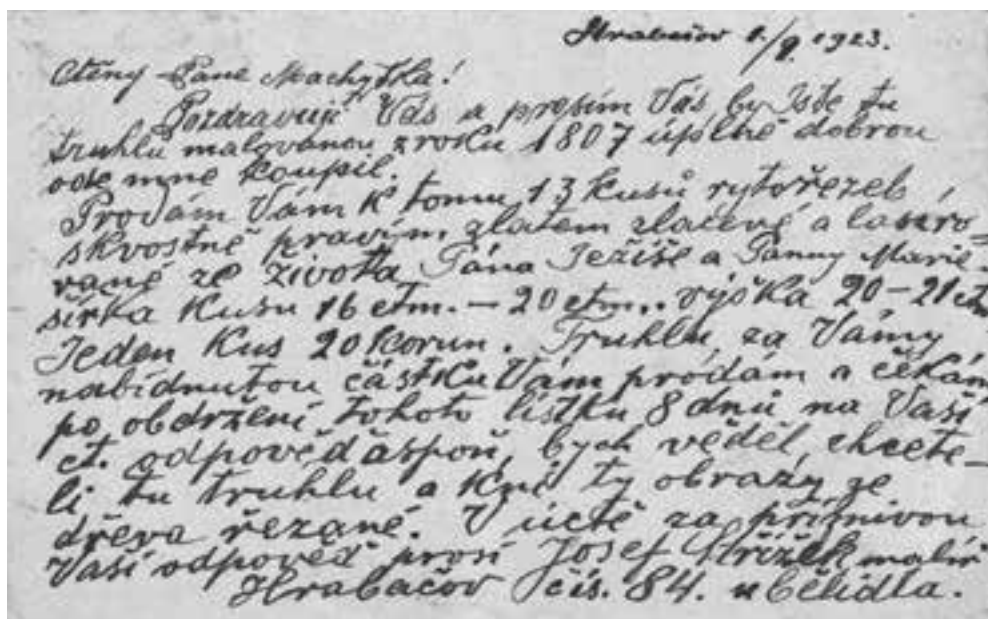 Hrabačov 1./9. 1923.
Ctěný Pane Machytka!
Pozdravuji Vás a prosím Vás by Jste tu
truhlu malovanou z roku 1807 úplně dobrou
ode mne koupil.
Prodám Vám k tomu 13 kusů rytořezeb
skvostně pravým zlatem zlacené a lasuro-
vané ze života Pána Ježíše a Panny Marie.
šířka kusu 16 ctm. — 20 ctm.. výška 20 — 21 ctm
Jeden kus 20 korun. Truhlu za Vámy
nabídnutou částku Vám prodám a čěkám
po obdržení tohoto lístku 8 dnů na Vaši
ct. odpověď aspoň, bych věděl, chcete-
li tu truhlu a kní ty obrazy ze
dřeva řezané. V úctě za příznivou
Vaší odpověď prosí Josef Střížek malíř
Hrabačov čis. 84. u Bělidla.